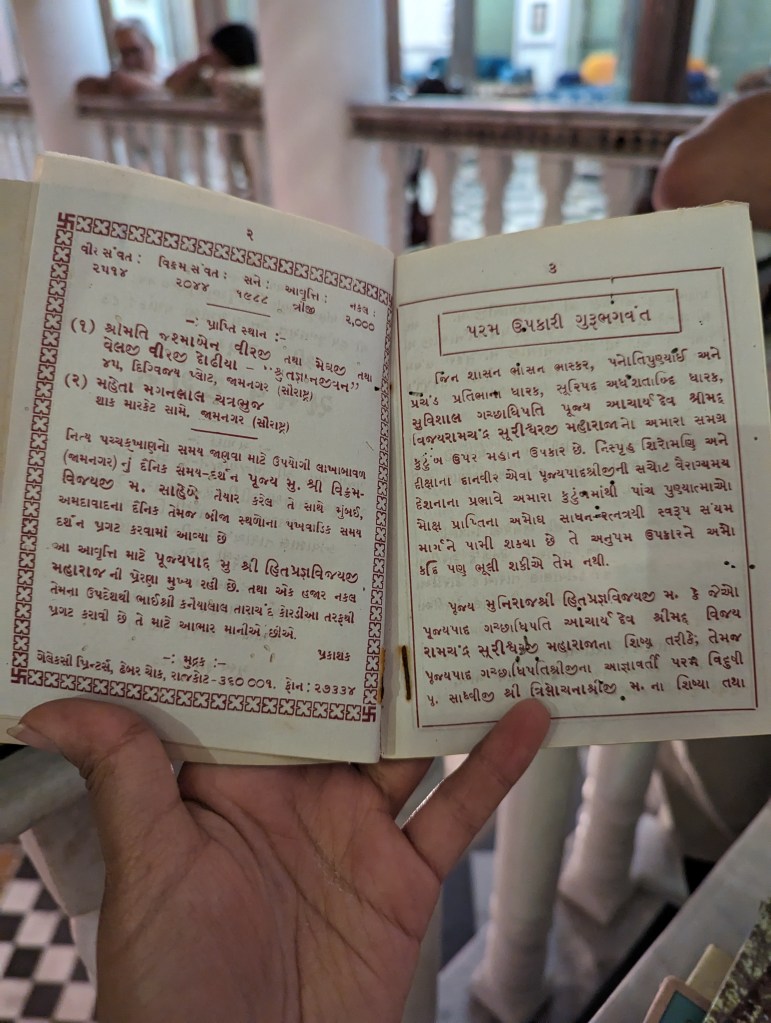 ૨
વીર સંવત : વિક્રમ સંવત : સને : આવૃત્તિ : નકલ :
૨૫૧૪ ૨૦૪૪ ૧૯૮૮ ત્રીજી ૨,૦૦૦
-: પ્રાપ્તિ સ્થાન :-
(૧) શ્રીમતિ જશ્માબેન વીરજી તથા મેઘજી તથા
વેલજી વીરજી દોઢીયા - "કૃતજ્ઞાનજીવન"
૪૫, દિગ્વિજય પ્લોટ, જામનગર (સૌરાષ્ટ્ર)
(૨) મહેતા મગનલાલ ચત્રભુજ
શાક મારકેટ સામે, જામનગર (સૌરાષ્ટ્ર)
નિત્ય પચ્ચક્ખાણનો સમય જાણવા માટે ઉપયોગી લાખાબાવળ
(જામનગર) નું દૈનિક સમય-દર્શન પૂજ્ય મુ. શ્રી વિક્રમ-
વિજયજી મ. સાહેબે તૈયાર કરેલ તે સાથે મુંબઈ,
અમદાવાદના દૈનિક તેમજ બીજા સ્થળોના પખવાડિક સમય
દર્શન પ્રગટ કરવામાં આવ્યા છે
આ આવૃત્તિ માટે પૂજ્યપાદ મુ શ્રી હિતપ્રજ્ઞવિજયજી
મહારાજ ની પ્રેરણા મુખ્ય રહી છે. તથા એક હજાર નકલ
તેમના ઉપદેશથી ભાઈશ્રી કનૈયાલાલ તારાચંદ કોરડીઆ તરફથી
પ્રગટ કરાવી છે તે માટે આભાર માનીએ છીએ.
પ્રકાશક
-: મુદ્રક :-
ગેલેક્સી પ્રિન્ટર્સ, ઢેબર ચોક, રાજકોટ-૩૬૦૦૦૧. ફોન : ૨૭૩૩૪
૩
પરમ ઉપકારી ગુરૂભગવંત
જિન શાસન ભાસન ભાસ્કર, પનોતિપુણ્યાઈ અને
પ્રચંડ પ્રતિભાના ધારક, સૂરિપદ અર્ધશતાબ્દિ ધારક,
સુવિશાલ ગચ્છાધિપતિ પૂજ્ય આચાર્યદેવ શ્રીમદ્
વિજયરામચંદ્ર સૂરીશ્વરજી મહારાજાનો અમારા સમગ્ર
કુટુંબ ઉપર મહાન ઉપકાર છે. નિસ્પૃહ શિરોમણિ અને
દીક્ષાના દાનવીર એવા પૂજ્યપાદશ્રીજીની સચોટ વૈરાગ્યમય
દેશનાના પ્રભાવે અમારા કુટુંબમાંથી પાંચ પુણ્યાત્માઓ
મોક્ષ પ્રાપ્તિના અમોઘ સાધન-રત્નત્રયી સ્વરૂપ સંયમ
માર્ગને પામી શક્યા છે તે અનુપમ ઉપકારને અમો
કદિ પણ ભૂલી શકીએ તેમ નથી.
પૂજ્ય મુનિરાજશ્રી હિતપ્રજ્ઞવિજયજી મ. કે જેઓ
પૂજ્યપાદ ગચ્છાધિપતિ આચાર્ય દેવ શ્રીમદ્ વિજય
રામચંદ્ર સૂરીશ્વરજી મહારાજાના શિષ્ય તરીકે; તેમજ
પૂજ્યપાદ ગચ્છાધિપતિશ્રીના આજ્ઞાવર્તી પરમ વિદુષી
પૂ. સાધ્વીજી શ્રી ત્રિલોચનાશ્રીજી મ. ના શિષ્યા તથા